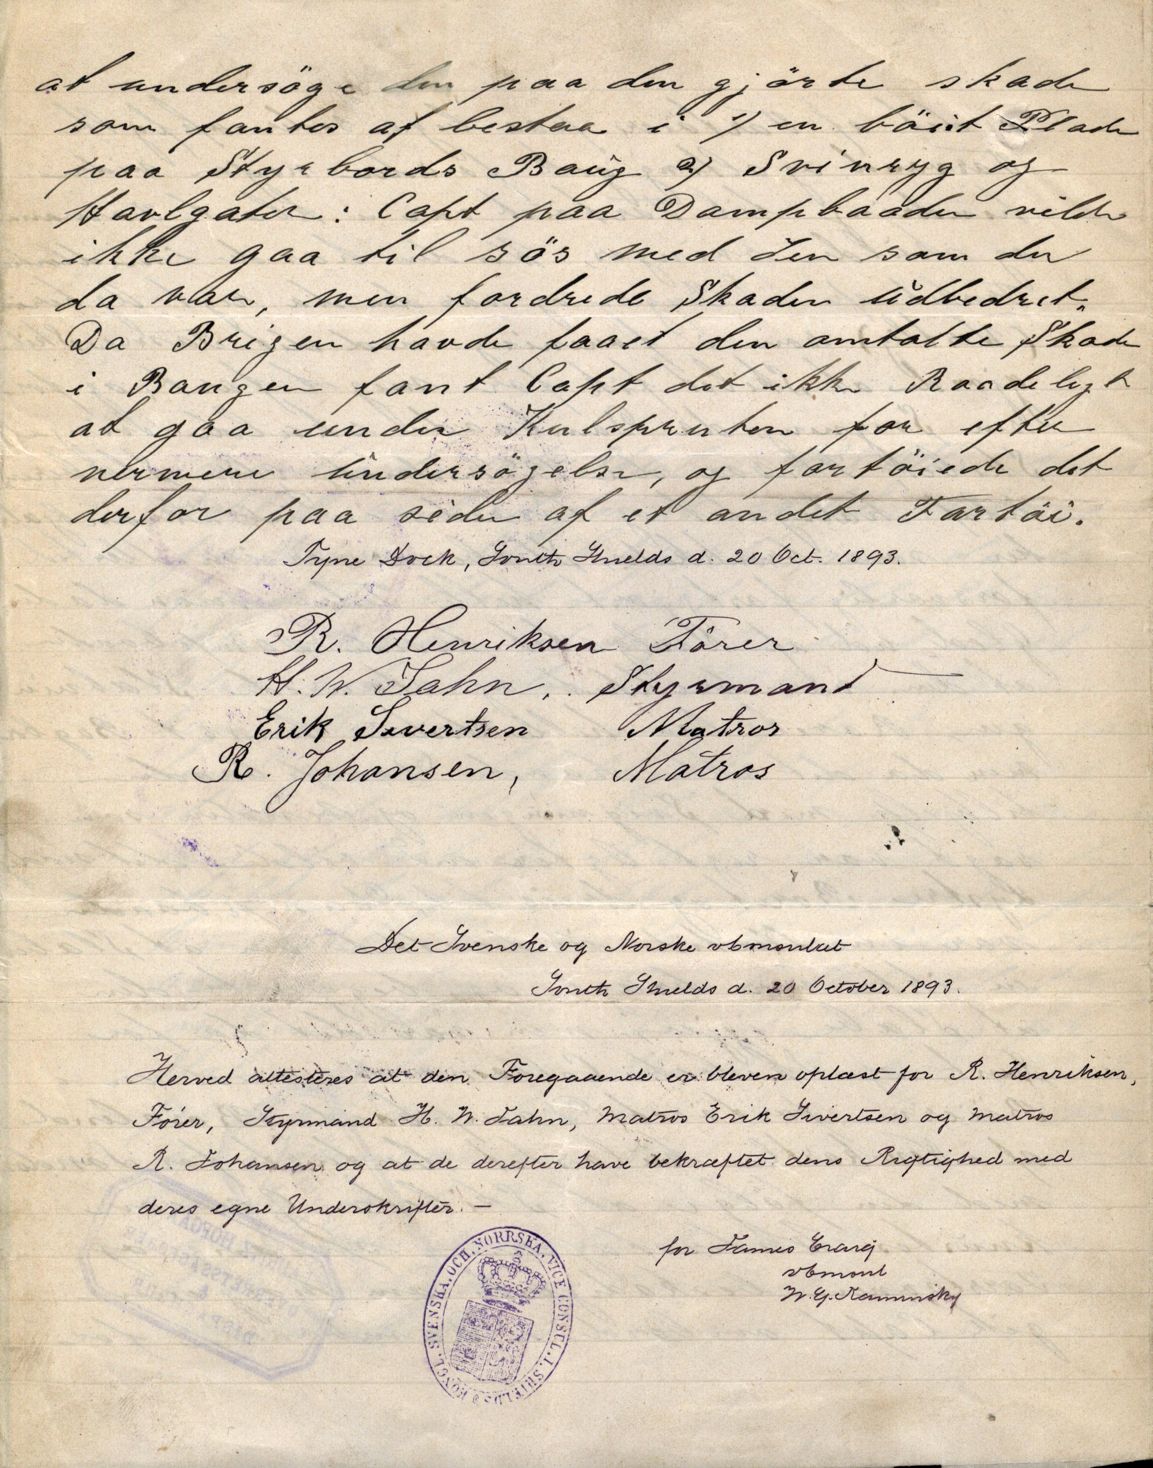 at undersöge den paa den gjörte skade
som fantes af bestaa i 1) en böiet Plade
paa Styrbords Baug 2) Svinryg og
Havlgater: Capt paa Dampbaaden vilde
ikke gaa til sös med den som den
da var, men fordrede Skaden udbedret.
Da Brigen havde faaet den omtalte Skade
i Baugen fant Capt det ikke Raadeligt
at gaa under Kulspruten for efter
nermere undersögelse, og fortöiede det
derfor paa siden af et andet Fartöi.
Tyne Dock, South Shields d. 20 Oct. 1893.
R. Henriksen Förer
H. W. Jahn, Styrmand
Erik Sivertsen Matros
R. Johansen, Matros
Det Svenske og Norske vConsulat
South Shields d. 20 October 1893.
Herved attesteres at den Foregaaende er bleven oplæst for R. Henriksen,
Förer, Styrmand H. W. Jahn, Matros Erik Sivertsen og Matros
R. Johansen og at de derefter have bekræftet dens Rigtighed med
deres egne Underskrifter. —
for James Craig
vConsul
W. G. Kaminsky
KONGL. SVENSKA. OCH. NORRSKA. VICE CONSUL. I. SHIELDS